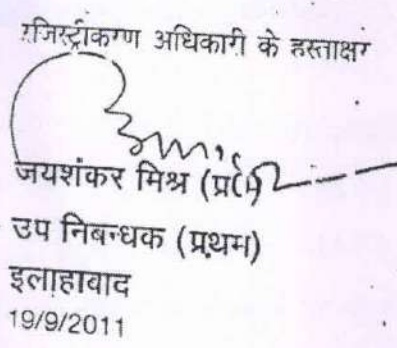 रजिस्ट्रीकरण अधिकारी के हस्ताक्षर
जयशंकर मिश्र (प्र०)
उप निबन्धक (प्रथम)
इलाहाबाद
19/9/2011